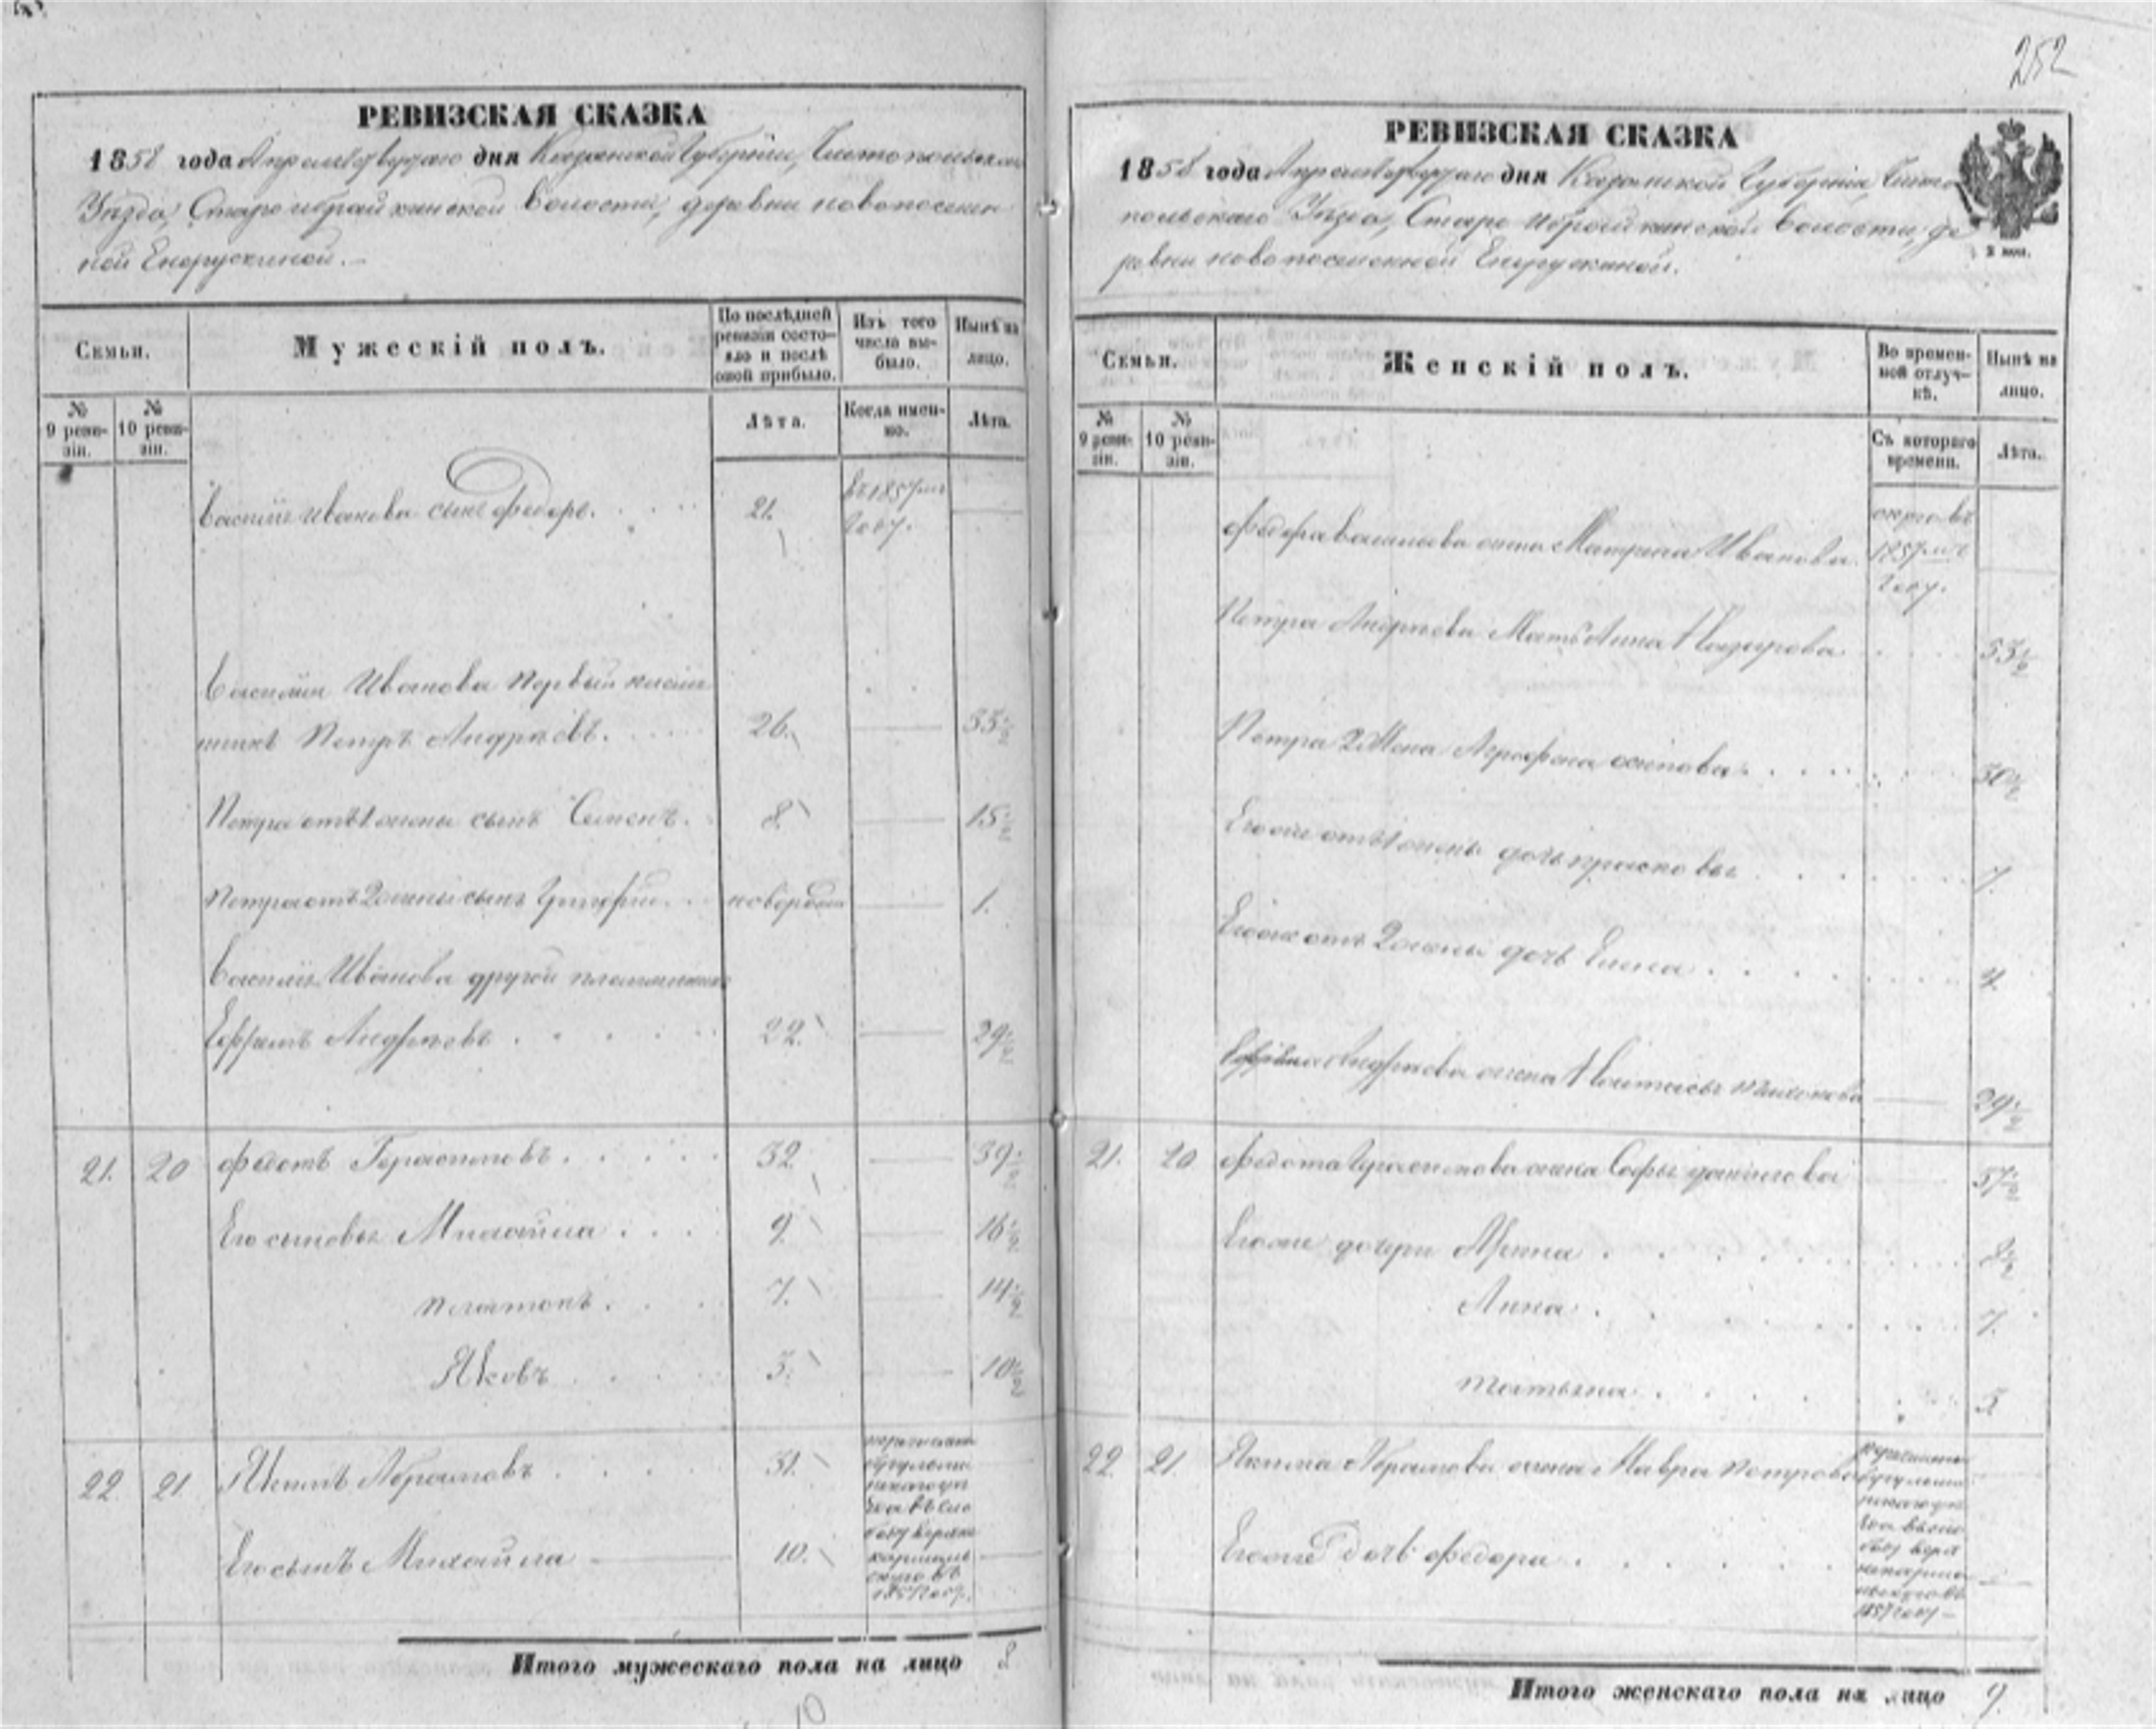 252
РЕВИЗСКАЯ СКАЗКА
1858 года Апреля дня Казанской Губернии, Чистопольскаго
Уѣзда, Староибрайкинской волости, деревни новопоселен
ной Енорускиной.
Семьи.
Мужескій полъ.
По послѣдней ревизіи состояло и послѣ оной прибыло.
Изъ того числа выбыло.
Нынѣ на лицо.
№ 9 ревизіи.
№ 10 ревизіи.
Лѣта.
Когда именно.
Лѣта.
Василія Иванова сынъ Федоръ. 21. въ 1857мъ
году.
Василія Иванова первый племян
никъ Петръ Андреевъ. 26. 33 1/2
Петра отъ 1 жены сынъ Семенъ. 8. 15 1/2
Петра отъ 2 жены сынъ Григорій. новорожд 1.
Василія Иванова другой племянникъ
Ефремъ Андреевъ 22. 29 1/2
21. 20 Федотъ Герасимовъ. 32 39 1/2
Его сыновья Михайла 9. 16 1/2
платонъ. 7. 14 1/2
Яковъ 3. 10 1/2
22 21 Якимъ Абрамовъ 31.
Его сынъ Михайла 10.
въ
1857 году.
Итого мужескаго пола на лицо 8
10
РЕВИЗСКАЯ СКАЗКА
1858 года Апреля дня Казанской Губерніи, Чисто
польскаго Уѣзда, Старо ибрайкинской волости, де
ревни новопоселенной Енорускиной.
3 коп.
Семьи.
Женскій полъ.
Во временной отлучкѣ.
Нынѣ на лицо.
№ 9 ревизіи.
№ 10 ревизіи.
Съ котораго времени.
Лѣта.
Федора Васильева жена Матрина Иванова
1857мъ
году.
Петра Андреева Мать Анна Назарова 53 1/2
Петра 2 Жена Агрофена осипова 30 1/2
Егоже отъ 1 жены дочь прасковья 7.
Егоже отъ 2 жены дочь Елена 4.
Ефрема Андреева жена Настасья 29 1/2
21. 20 Федота Герасимова жена Софья 37 1/2
Егоже дочери Арина 8 1/2
Анна 7.
татьяна 3
22. 21. Якима Абрамова жена Мавра петрова
Егоже дочь Федора
1857 году
Итого женскаго пола на лицо 9.